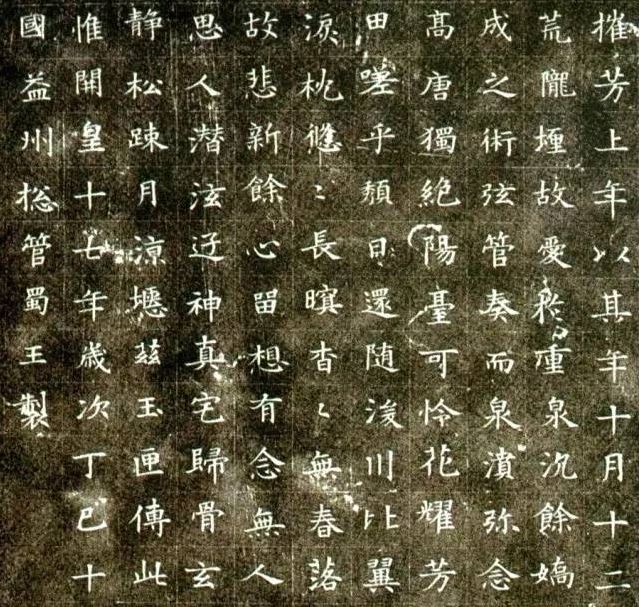 摧芳上年以其年十月十二
荒隴堙故愛於重泉沉餘嬌
成之術弦管奏而泉濆弥念
髙唐獨絶陽臺可怜花耀芳
田嗟乎頽日還随湲川比翼
淚枕悠〻長暝杳〻無春落
故悲新餘心留想有念無人
思人潜泫迂神真宅歸骨玄
静松踈月涼壥茲玉匣傳此
惟開皇十七年歲次丁巳十
國益州捴管蜀王製